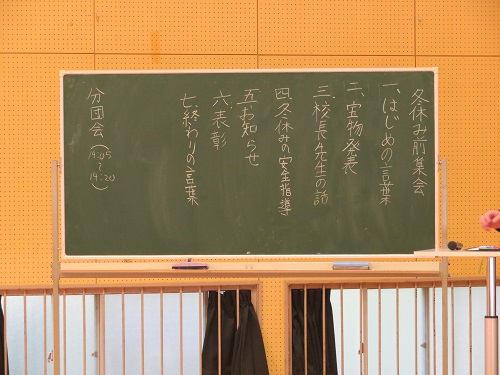 冬休み前集会
一、はじめの言葉
二、宝物発表
三、校長先生の話
四、冬休みの安全指導
五、お知らせ
六、表彰
七、終わりの言葉
分団会(14:05
〜
14:20)